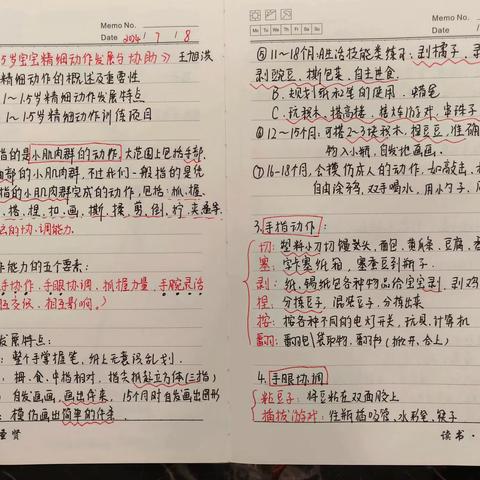 Memo No.
Mo Tu We Th Fr Sa Su
Date 2024 / 7 / 8
5岁宝宝精细动作发展与协助》 王旭洪
精细动作的概述及重要性
1～1.5岁精细动作发展特点
1～1.5岁精细动作训练项目
指的是小肌肉群的动作,大范围上包括手部,
部的小肌肉群,不过我们一般指的是他
指的小肌肉群完成的动作,包括:抓、握、
、捏、扣、画、撕、揉、剪、倒、拧、夹、
的协调能力。
能力的五个要素:
手协作、手眼协调、抓握力量、手腕灵活
相互影响。)
发展特点:
:整个手掌握笔,纸上无意识乱划。
:拇、食、中指相对,指尖抓起立方体(三指)
自发画画,画出像来,15个月时自发画出图形
:模仿画出简单的线条。
Memo No.
Date
Mo Tu We Th Fr Sa Su
⑤11～18个月:A.生活技能类练习:剥橘子、
剥豌豆、撕包菜、自主进食。
B.规划纸和笔的使用、蜡笔
C.玩积木、搭高楼、搭火车游戏、串珠子
⑥12～15个月:可搭2～3块积木,捏豆豆,准确
物入小瓶,自发地画画.
⑦16-18个月,会模仿成人的动作,如敲击、
自由涂鸦、双手喝水、用小勺子、
3.手指动作:
切:塑料小刀切馒头、面包、黄瓜条、豆腐、
塞:字卡塞纸箱,塞蚕豆到瓶子.
剥:纸、锡纸包各种物品给宝宝剥、剥
捏:分拣豆子,混装豆子,分拣出来
按:按各种不同的电灯开关、玩具、计算机
翻:翻包/袋取物、翻书(掀开、合上)
4.手眼协调
粘豆子:将豆粘在双面胶上
插拔游戏:往瓶插吸管、水彩笔、筷子
读书·